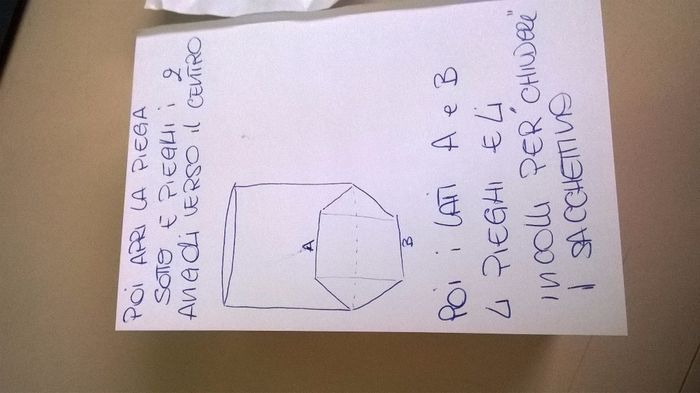 POI APRI LA PIEGA
SOTTO E PIEGHI I 2
ANGOLI VERSO IL CENTRO
A
B
POI I LATI A e B
LI PIEGHI E LI
INCOLLI PER "CHIUDERE"
I SACCHETTINO